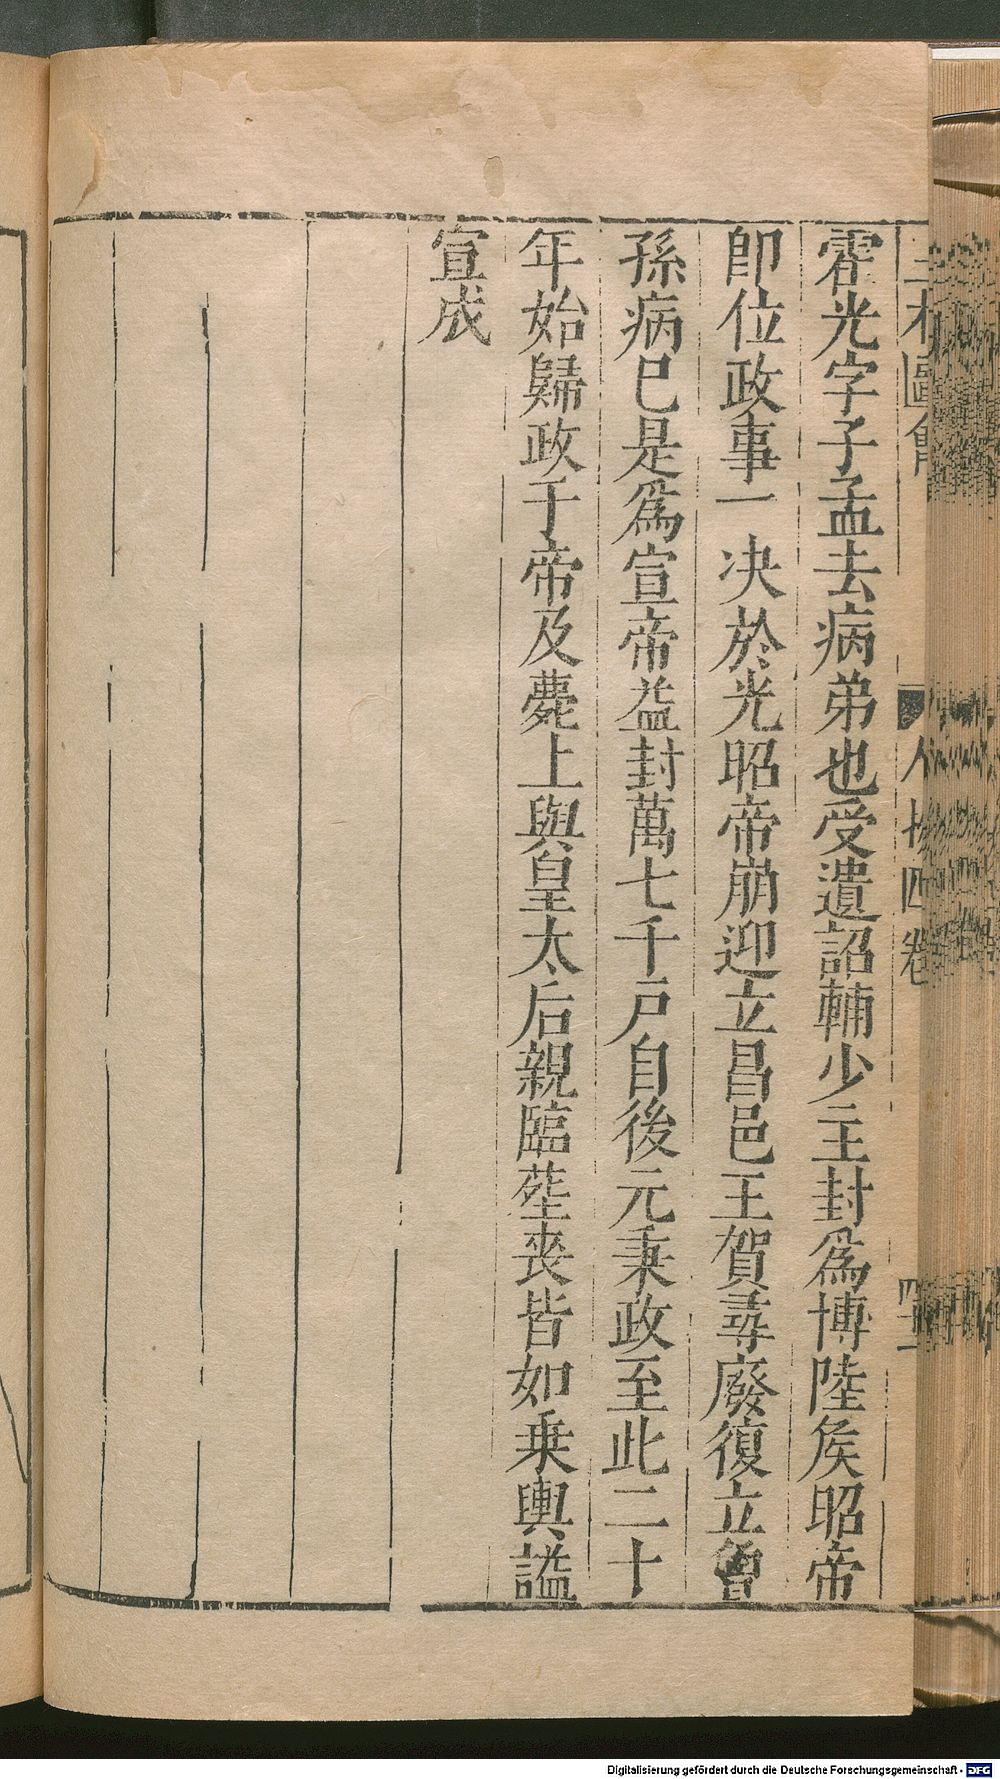 霍光字子孟去病弟也受遺詔輔少主封爲博陸矦昭帝
卽位政事一决於光昭帝崩迎立昌邑王賀尋廢復立曾
孫病巳是爲宣帝益封萬七千戸自後元秉政至此二十
年始歸政于帝及薨上與皇太后親臨塟喪皆如乗輿諡
宣成
Digitalisierung gefördert durch die Deutsche Forschungsgemeinschaft - DFG